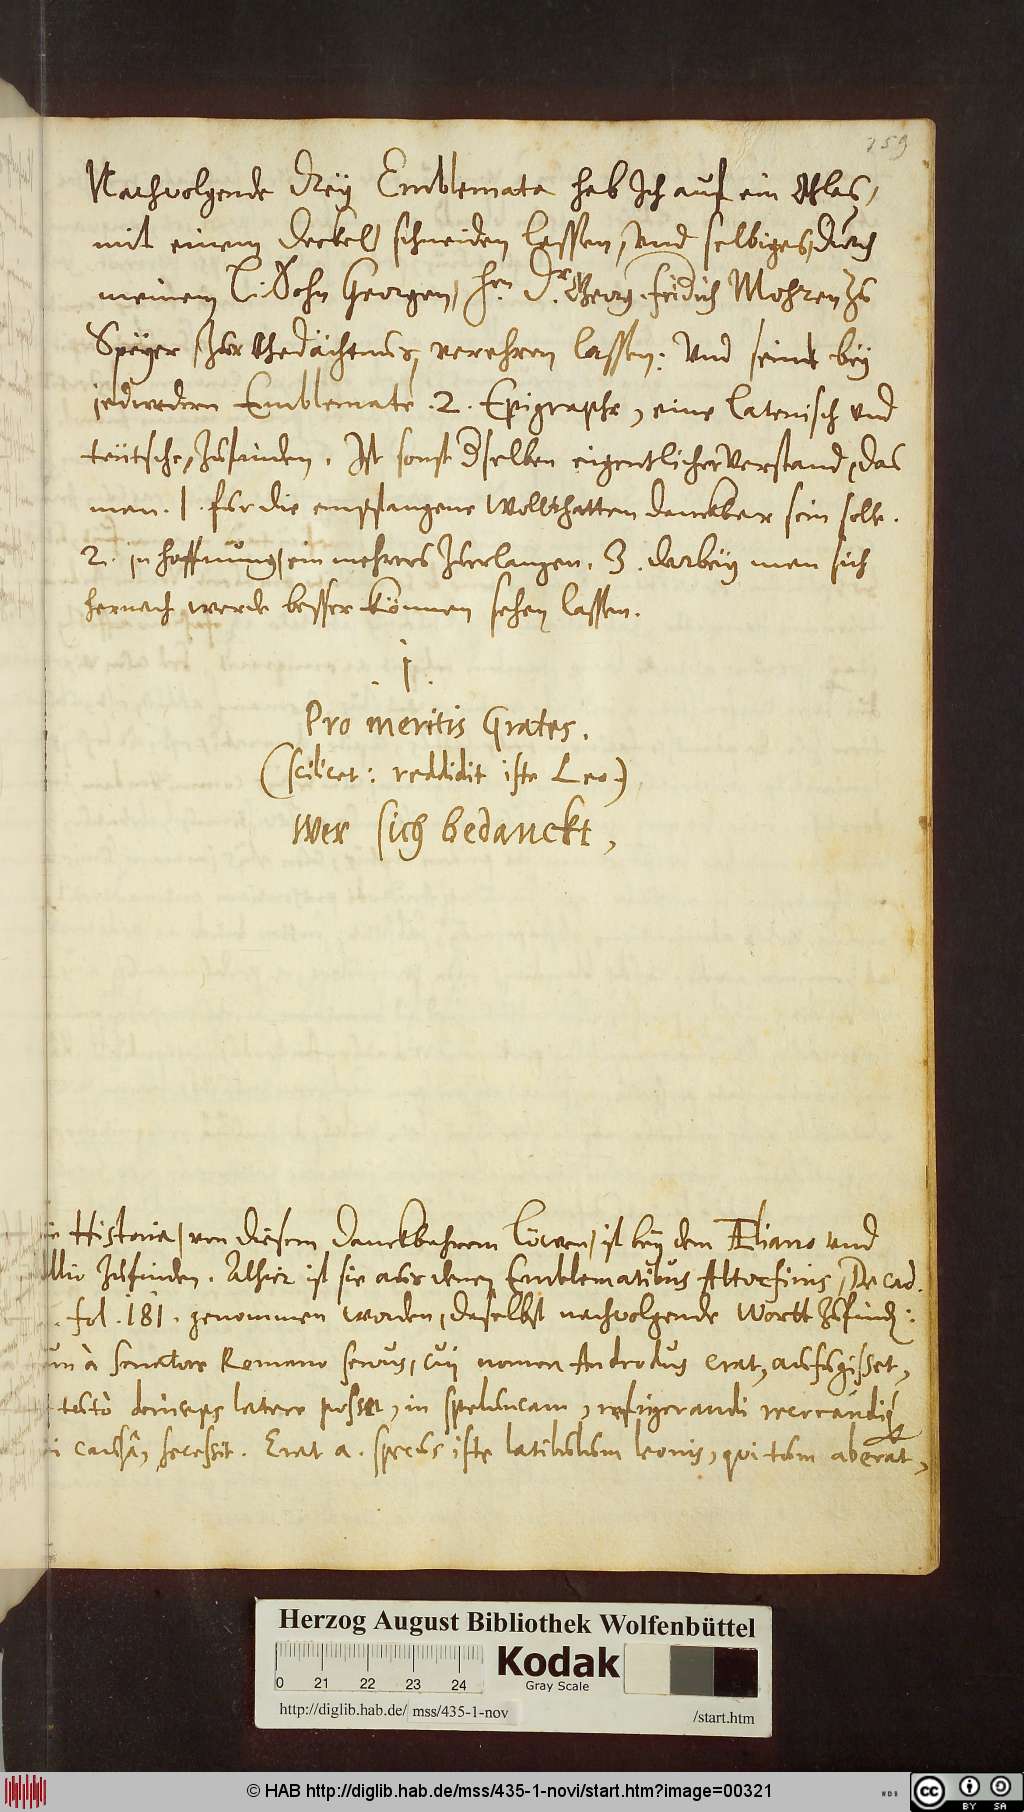 159
Nachvolgende dreÿ Emblemata hab Ich auf ein Glas,
mit einem deckel, schneiden lassen, Und selbiges, durch
meinem l: Sohn Georgen, hn. Dr. Georg Fridrich Mohren zu
Speÿer zur Gedächtnus, verehren lassen: Und seind beÿ
jedwedern Emblemate .2. Epigraphe, eine latenisch und
teütsche, zufinden. Ist sonst dselben eigentlicher Verstand, das
man .1. für die empfangene Wollthatten danckbar sein solle.
2. in hoffnung, ein mehrers zuerlangen. 3. darbeÿ man sich
hernach werde besser können sehen lassen.
.1.
Pro meritis Grates.
(scilicet: reddidit iste Leo.)
Wer sich bedanckt,
Historia, von diesem danckbahrem Löwen, ist beÿ dem Æliano und
llio zufinden. Alhier ist sie aus denen Emblematibus Altorfinis, Decad.
. fol. 181. genommen worden, daselbst nachvolgende Wortt zufind:
à Senatore Romano servus, cuj nomen Androdus erat, aufugisset,
tutò deinceps latere posset, in speluncam, refrigerandi recreandiq
causâ, secessit. Erat a. specus iste latibulum leonis, qui tum aberat,
Herzog August Bibliothek Wolfenbüttel
0 21 22 23 24
Kodak
Gray Scale
http://diglib.hab.de/ mss/435-1-nov /start.htm
© HAB http://diglib.hab.de/mss/435-1-novi/start.htm?image=00321
WDB
cc BY SA